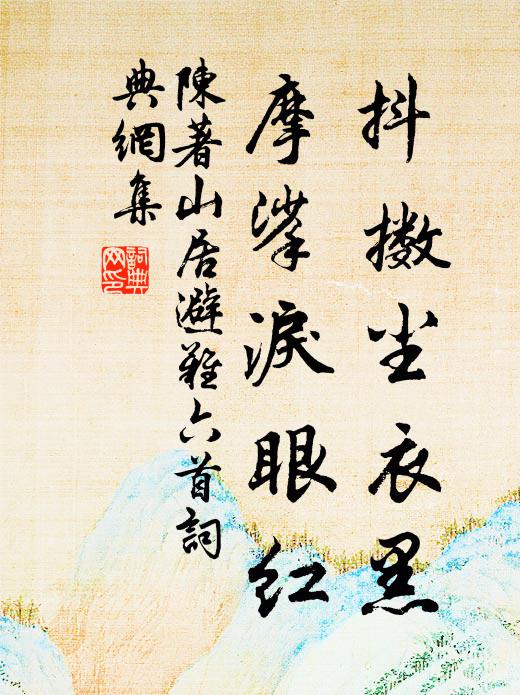 抖擻尘衣黑
摩挲淚眼红
陳著山居避難六首詞
典網集
詞典网印